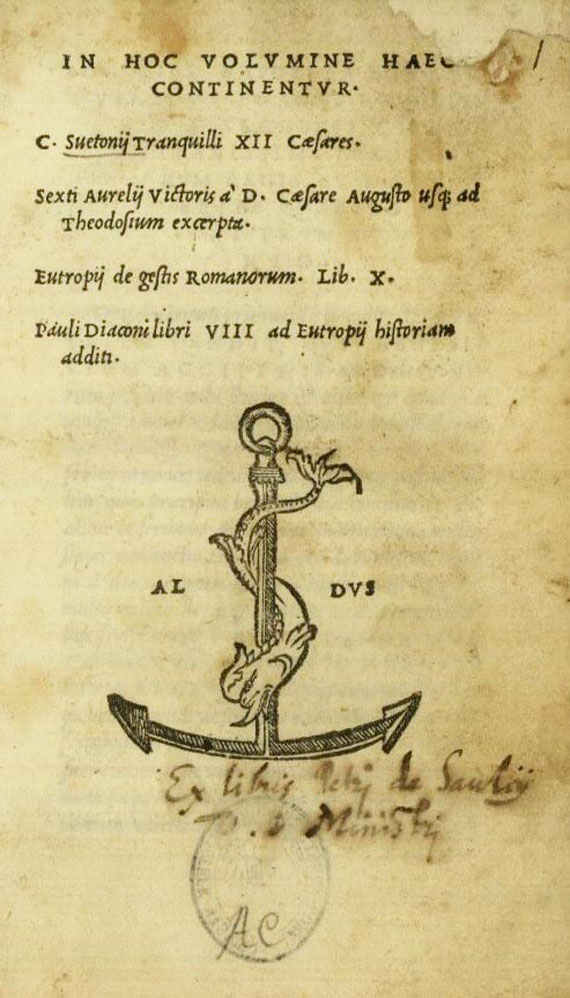 IN HOC VOLVMINE HAEC
CONTINENTVR.
C. Suetonij Tranquilli XII Cæsares.
Sexti Aurelij Victoris à D. Cæsare Augusto usq; ad
Theodosium excerpta.
Eutropij de gestis Romanorum. Lib. X.
Pauli Diaconi libri VIII ad Eutropij historiam
additi.
AL DVS
Ex libris Petrj de
Ministrj
AC